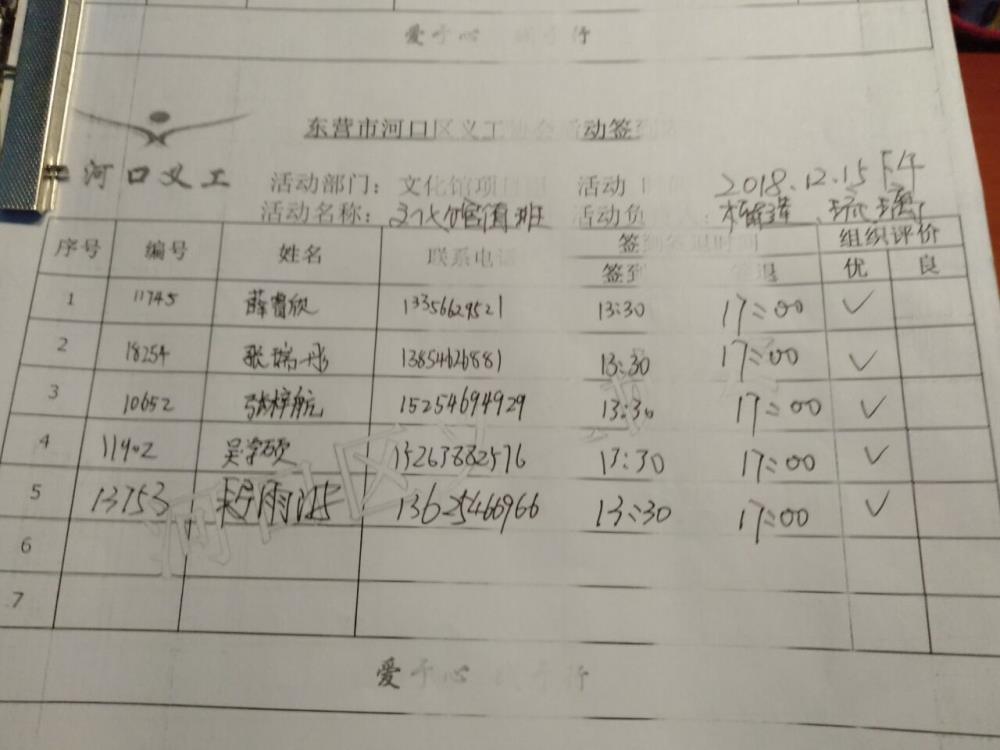 爱于心 践于行
东营市河口区义工协会活动签到
河口义工
活动部门：文化馆项目 活动 时 2018.12.15下午
活动名称：文化馆值班 活动负 人：
序号 编号 姓名 联系电话 签到签退时间 组织评价
签到 签退 优 良
1 11745 薛睿欣 13356629521 13:30 17:00 ✓
2 18254 张瑞丹 13854626881 13:30 17:00 ✓
3 10652 张梓航 15254694929 13:30 17:00 ✓
4 11902 吴学硕 15263882576 13:30 17:00 ✓
5 13753 雨 13625466966 13:30 17:00 ✓
6
7
河口区义
爱于心 践于行